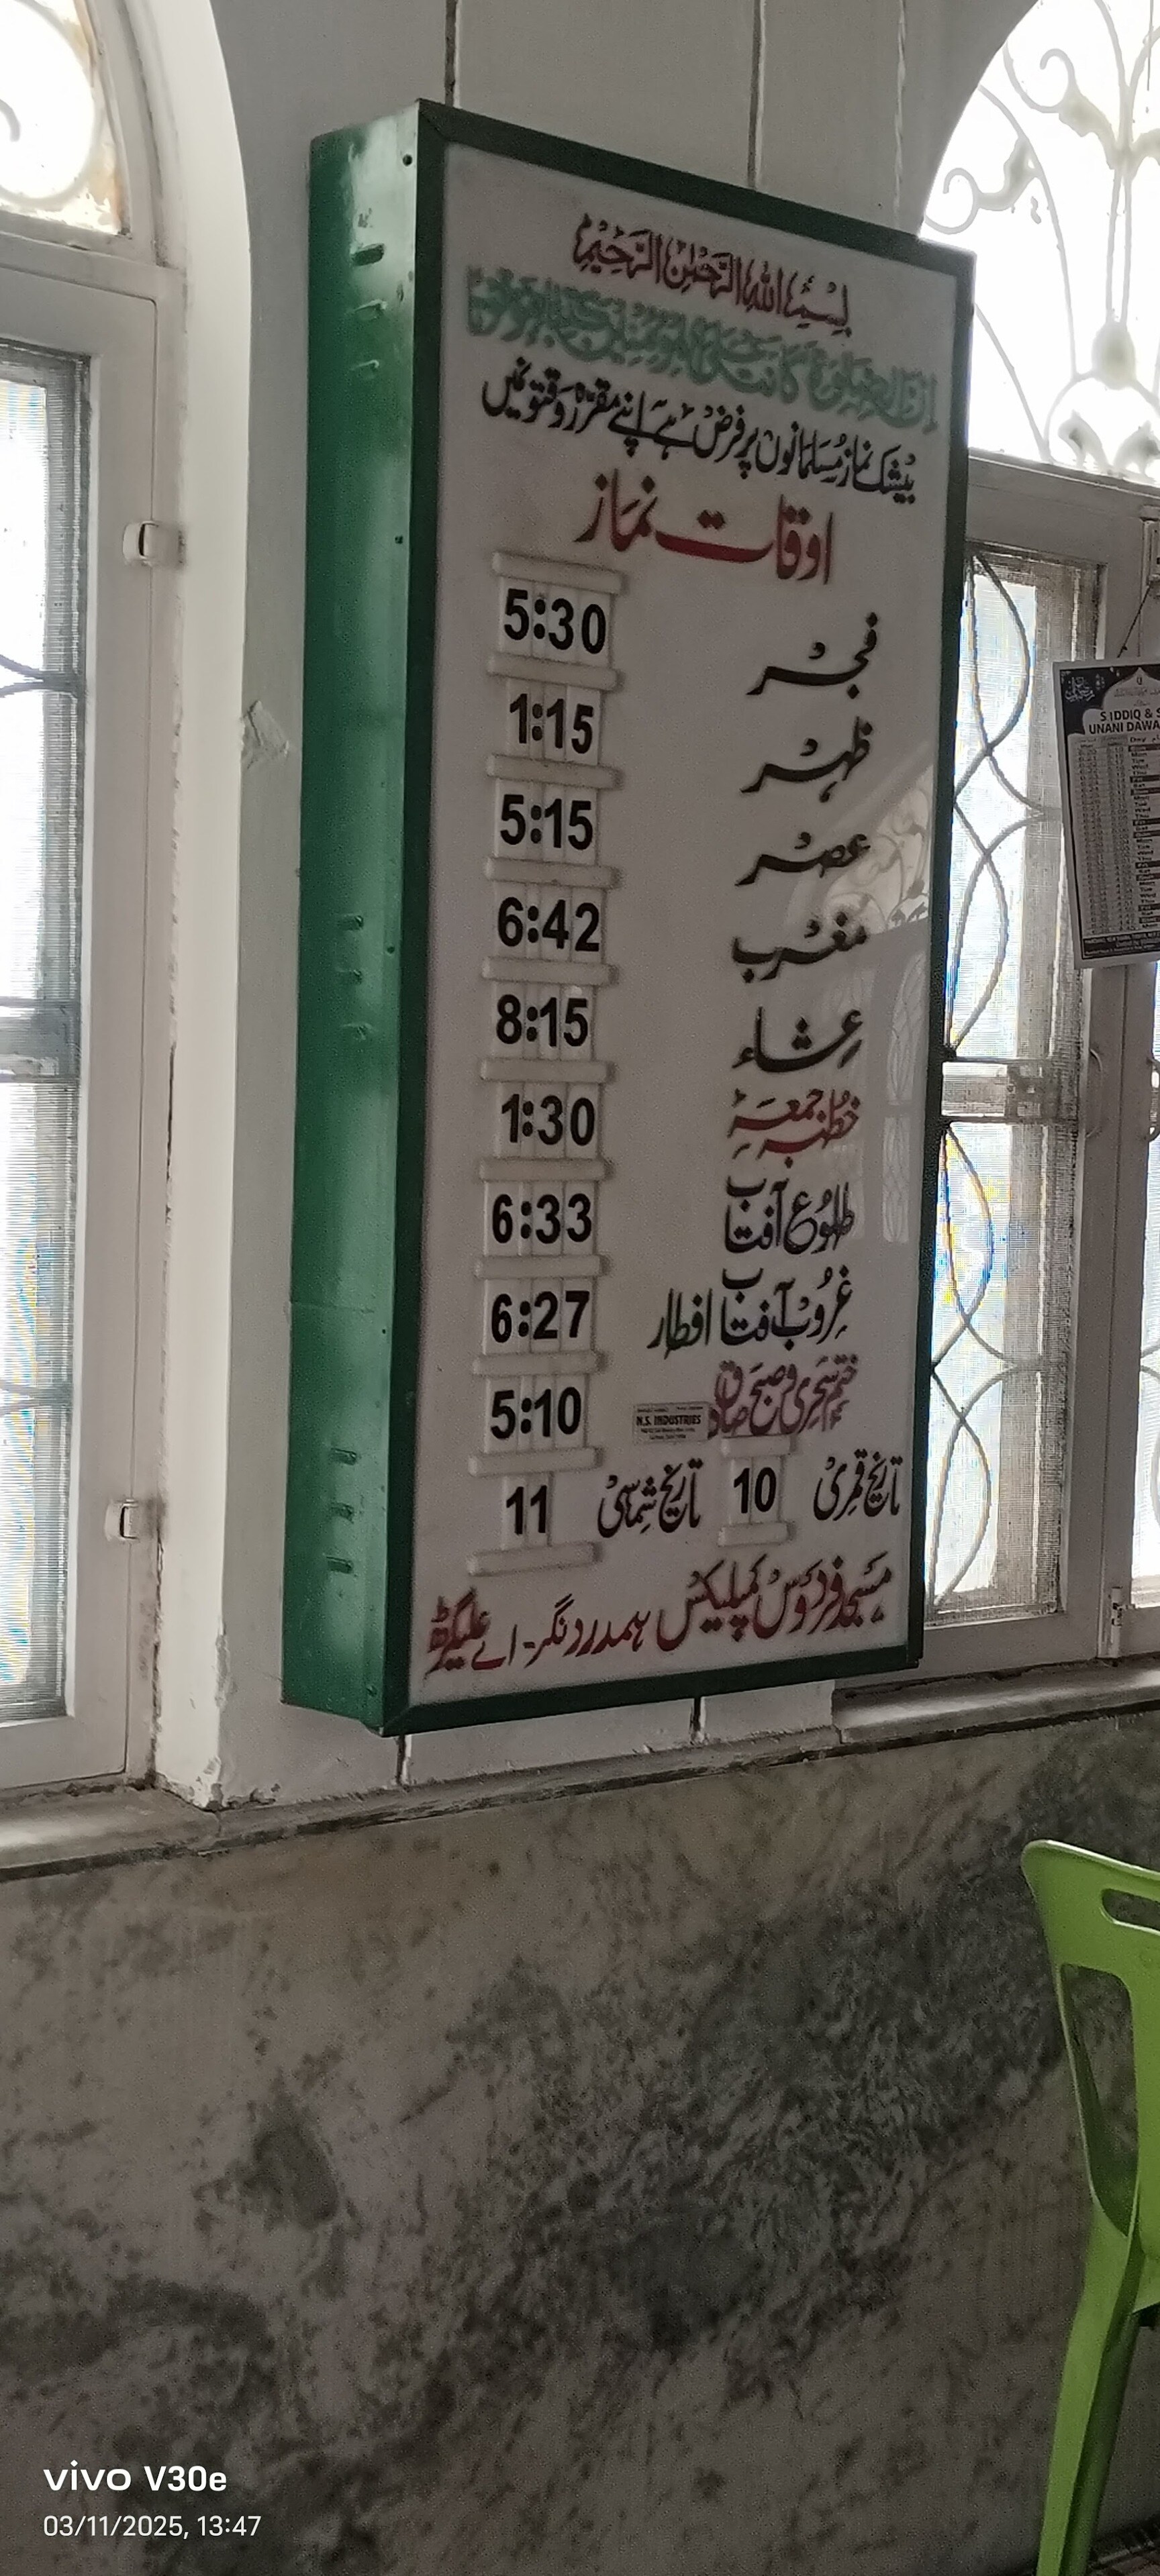 بِسْمِ اللهِ الرَّحْمٰنِ الرَّحِيْمِ
اِنَّ الصَّلٰوةَ كَانَتْ عَلَى الْمُؤْمِنِيْنَ كِتٰبًا مَّوْقُوْتًا
بیشک نماز مسلمانوں پر فرض ہے اپنے مقررہ وقتوں میں
اوقات نماز
فجر 5:30
ظہر 1:15
عصر 5:15
مغرب 6:42
عشاء 8:15
خطبہ جمعہ 1:30
طلوع آفتاب 6:33
غروب آفتاب افطار 6:27
ختم سحری و صبح صادق 5:10
N.S. INDUSTRIES
تاریخ قمری 10 تاریخ شمسی 11
مسجد فردوس کمپلیکس ہمدرد نگر - اے علیگڑھ
SIDDIQ & S
UNANI DAWA
vivo V30e
03/11/2025, 13:47